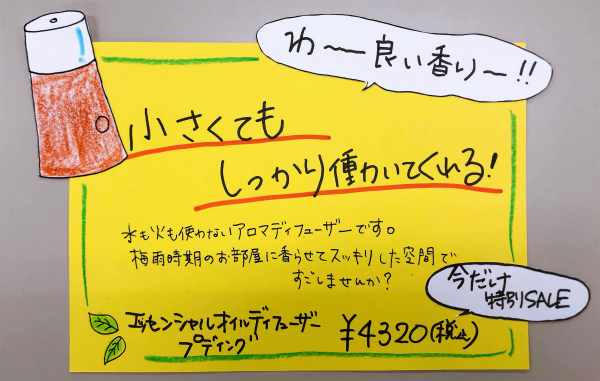 わ〜良い香り〜!!
小さくても
しっかり働かいてくれる!
水も火も使わないアロマディフューザーです。
梅雨時期のお部屋に香らせてスッキリした空間で
すごしませんか?
今だけ
特別SALE
エッセンシャルオイルディフューザー
プディング
¥4320(税込)